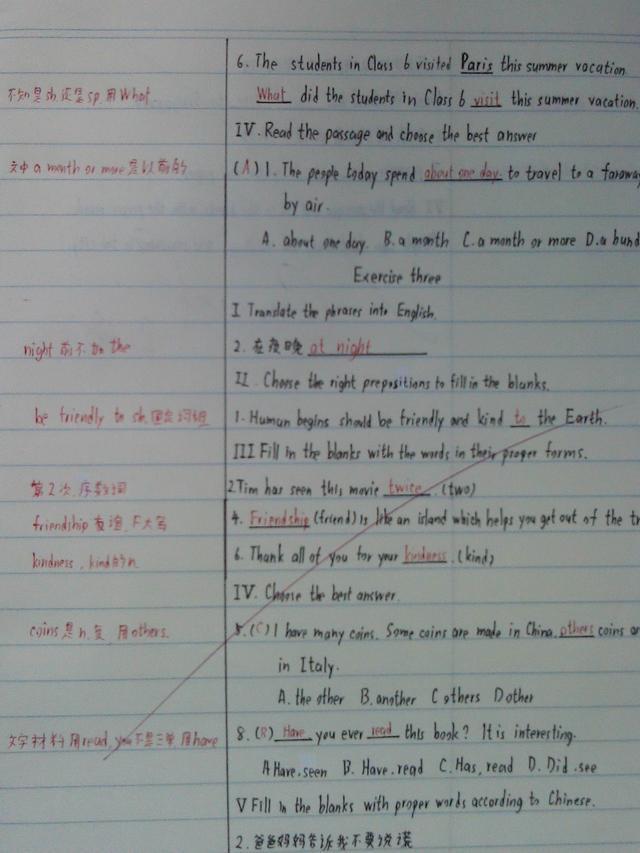 6. The students in Class 6 visited Paris this summer vacation.
不知是sh.还是sp.用What.
What did the students in Class 6 visit this summer vacation.
IV. Read the passage and choose the best answer
文中a month or more是以前的
(A) 1. The people today spend about one day to travel to a faraway
by air.
A. about one day. B. a month C. a month or more D. a
Exercise three
I Translate the phrases into English.
night前不加the
2. 在夜晚 at night
II. Choose the right prepositions to fill in the blanks.
be friendly to sh.固定词组
1. Human begins should be friendly and kind to the Earth.
III Fill in the blanks with the words in their proper forms.
第2次.序数词
2. Tim has seen this movie twice. (two)
friendship友谊.F大写
4. Friendship (friend) is like an island which helps you get out of the
kindness, kind的n.
6. Thank all of you for your kindness. (kind)
IV. Choose the best answer.
coins是n.复.用others.
5. (C) I have many coins. Some coins are made in China. others coins
in Italy.
A. the other B. another C others D other
文字材料用read, you不是三单.用have
8. (B) Have you ever read this book? It is interesting.
A Have. seen B. Have. read C. Has, read D. Did. see
V Fill in the blanks with proper words according to Chinese.
2. 爸爸妈妈告诉我不要说谎